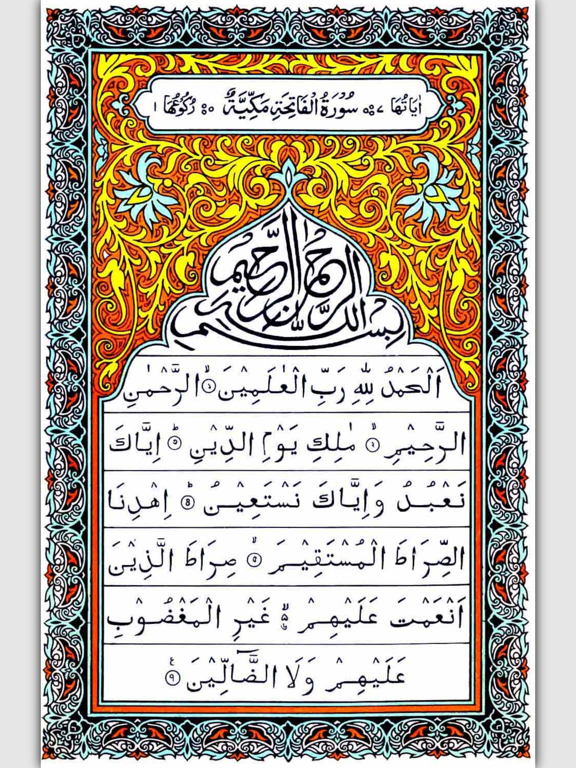 اٰيَاتُهَا ٧ سُوْرَةُ الْفَاتِحَةِ مَكِّيَّةٌ ٥ رُكُوْعُهَا ١
بِسْمِ اللّٰهِ الرَّحْمٰنِ الرَّحِيْمِ
اَلْحَمْدُ لِلّٰهِ رَبِّ الْعٰلَمِيْنَ ۙ الرَّحْمٰنِ
الرَّحِيْمِ ۙ مٰلِكِ يَوْمِ الدِّيْنِ ؕ اِيَّاكَ
نَعْبُدُ وَاِيَّاكَ نَسْتَعِيْنُ ؕ اِهْدِنَا
الصِّرَاطَ الْمُسْتَقِيْمَ ۙ صِرَاطَ الَّذِيْنَ
اَنْعَمْتَ عَلَيْهِمْ غَيْرِ الْمَغْضُوْبِ
عَلَيْهِمْ وَلَا الضَّآلِّيْنَ